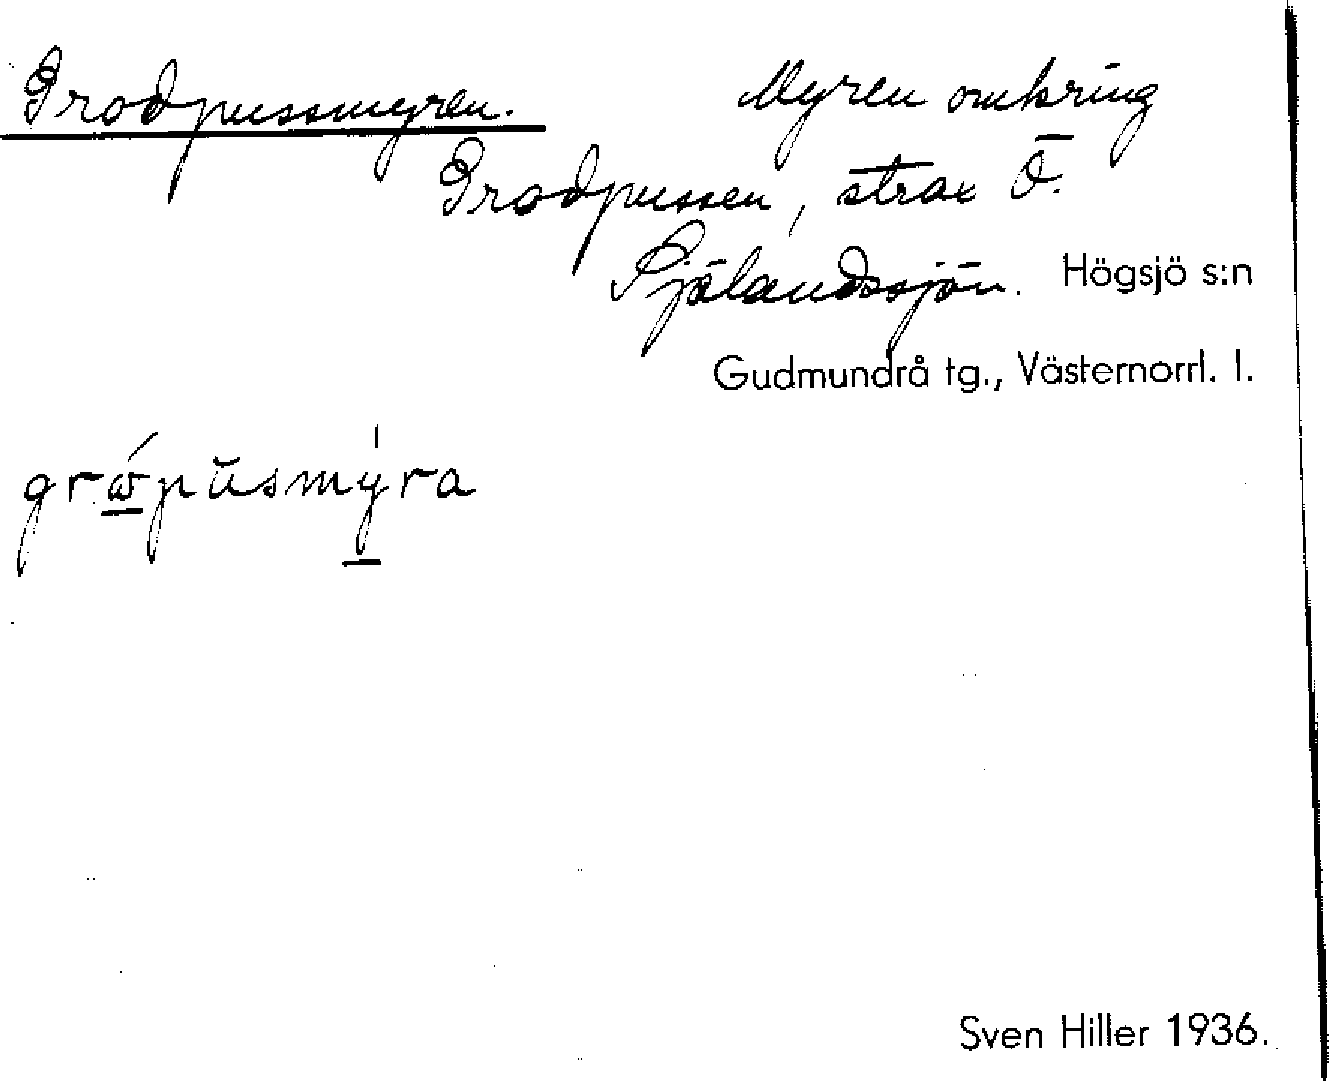 Grodpussmyren. Myren omkring
Grodpussen, strax Ö.
Själandssjön. Högsjö s:n
Gudmundrå tg., Västernorrl. l.
Sven Hiller 1936.